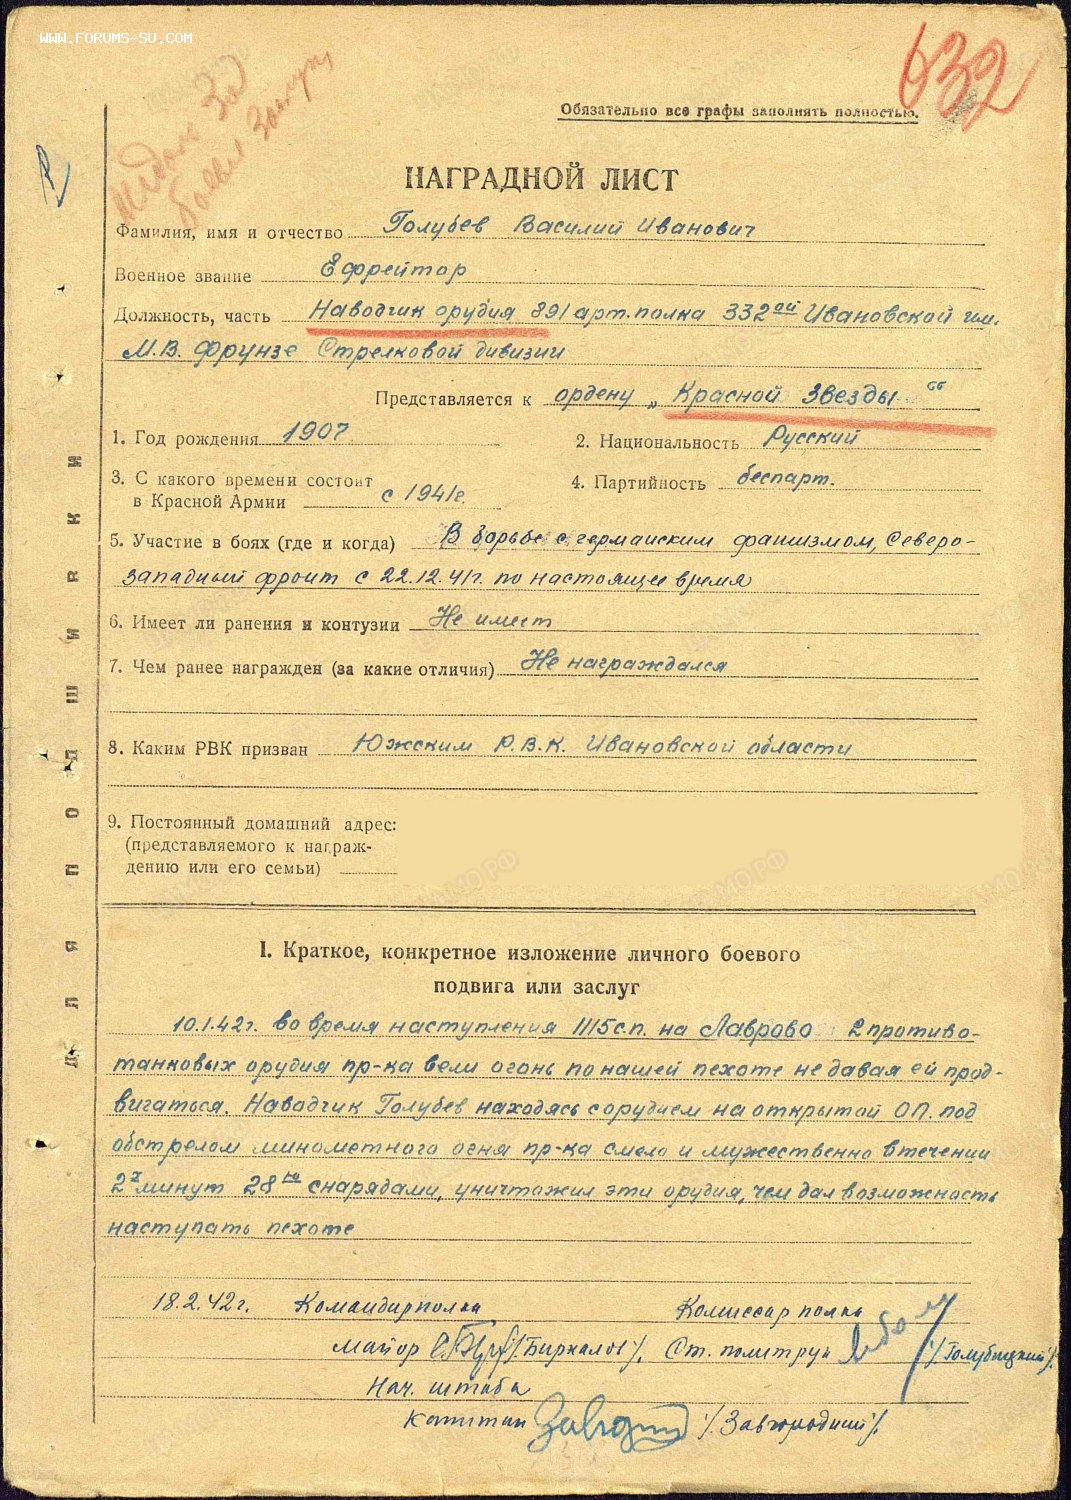 WWW.FORUMS-SU.COM
632
Медаль За
боевы заслуги
Обязательно все графы заполнять полностью.
НАГРАДНОЙ ЛИСТ
Фамилия, имя и отчество Голубев Василий Иванович
Военное звание Ефрейтор
Должность, часть Наводчик орудия 891 арт. полка 332ой Ивановской им.
М.В. Фрунзе Стрелковой дивизии
Представляется к ордену „Красной Звезды“
1. Год рождения 1907 2. Национальность Русский
3. С какого времени состоит
в Красной Армии с 1941г. 4. Партийность беспарт.
5. Участие в боях (где и когда) В борьбе с германским фашизмом, Северо-
западный фронт с 22.12.41г. по настоящее время
6. Имеет ли ранения и контузии Не имеет
7. Чем ранее награжден (за какие отличия) Не награждался
8. Каким РВК призван Южским Р.В.К. Ивановской области
9. Постоянный домашний адрес:
(представляемого к награж-
дению или его семьи)
ДЛЯ ПОДШИВКИ
I. Краткое, конкретное изложение личного боевого
подвига или заслуг
10.1.42г. во время наступления 1115 с.п. на Лаврово 2 противо-
танковых орудия пр-ка вели огонь по нашей пехоте не давая ей прод-
вигаться. Наводчик Голубев находясь с орудием на открытой ОП. под
обстрелом минометного огня пр-ка смело и мужественно втечении
2х минут 28ю снарядами, уничтожил эти орудия, чем дал возможность
наступать пехоте
18.2.42г. Командир полка Комиссар полка
майор /Бирналов/. Ст. политрук /Голубицкий/.
Нач. штаба
капитан /Завгородний/.